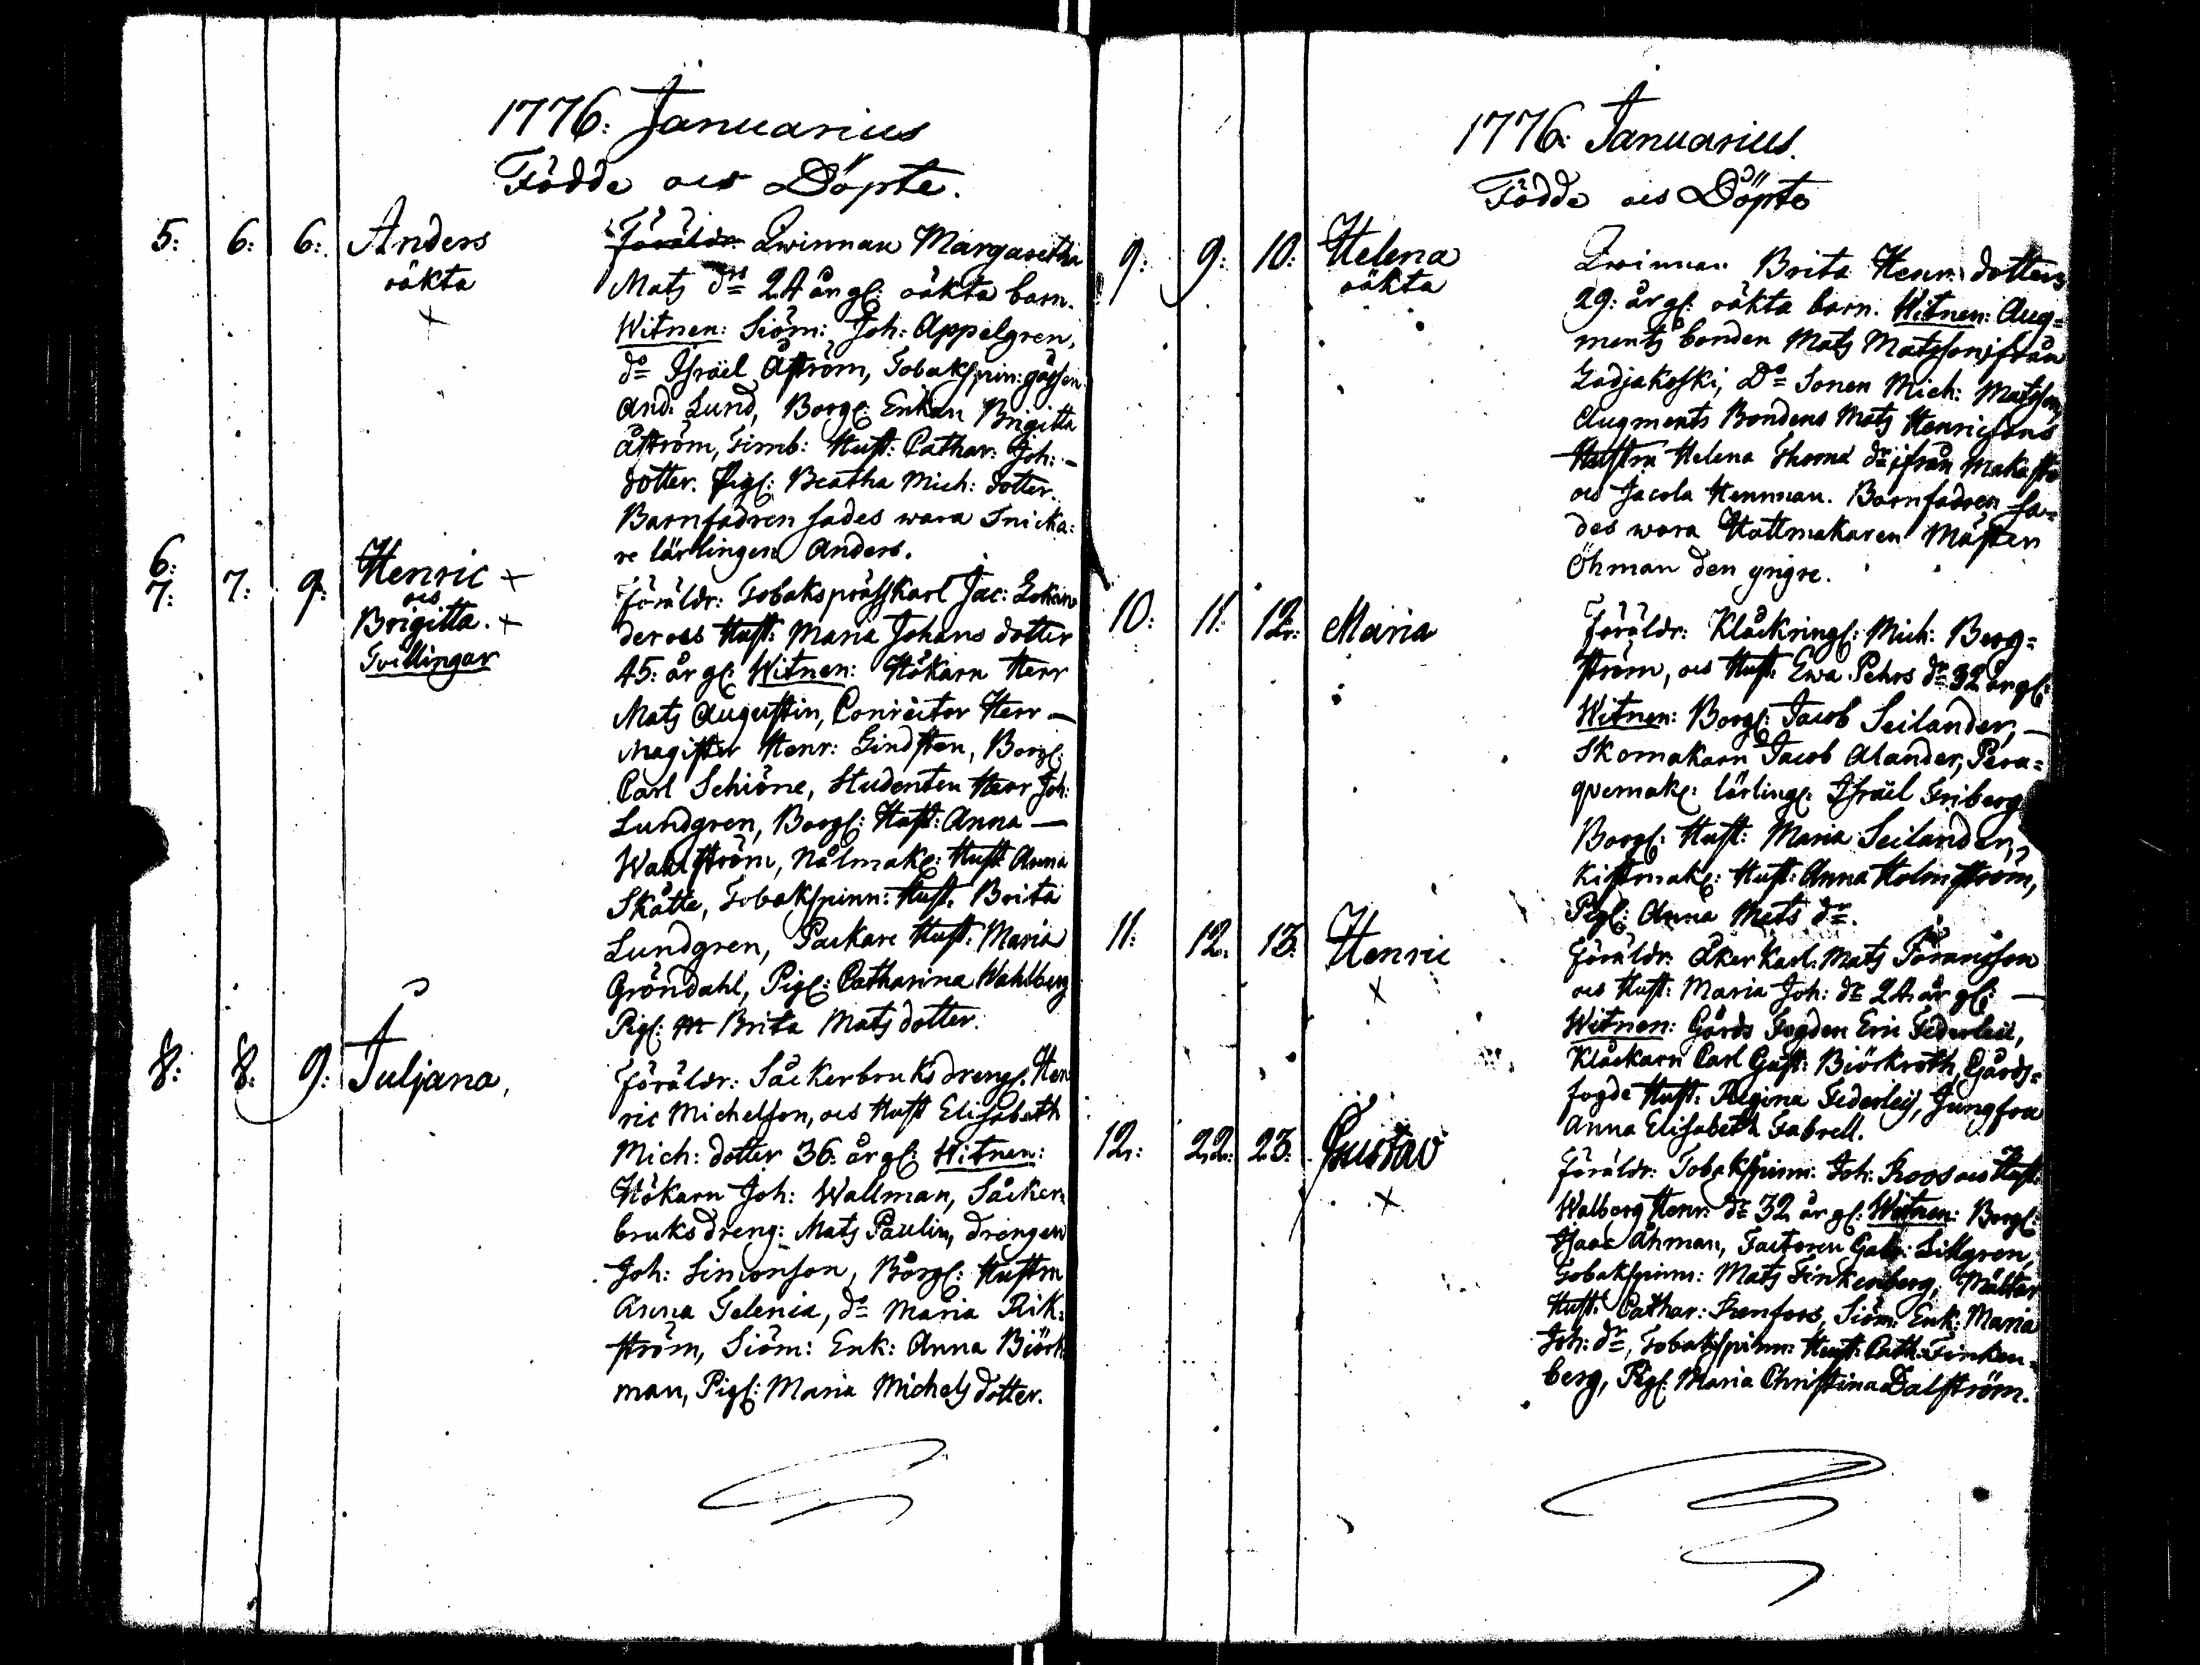 1776: Januarius
Födde och Döpte.
5: 6: 6: Anders
oäkta
Föräldr: Qwinnan Margaretha
Mats drs 24 år gl: oäkta barn.
Witnen: Siöm: Joh: Appelgren,
do Israel Åström, Tobakspin: gossen
And: Lund, Borgl: Enkan Brigitta
Åström, Timb: Hust: Cathar: Joh: —
dotter. Pigl: Beatha Mich: dotter.
Barnfadren sades wara Snicka:
re lärlingen Anders.
6:
7: 7: 9: Henric +
och
Brigitta. +
Tvillingar
Föräldr: Tobaksprässkarl Jac: Lekan
der och Hust: Maria Johans dotter
45: år gl: Witnen: Hökarn Herr
Mats Augustin, Conrector Herr —
Magister Henr: Lindsten, Borgl:
Carl Schiöne, Studenten Herr Joh:
Lundgren, Borgl: Hust: Anna —
Wahlström, Nålmakl: Hust: Anna
Skåtte, Tobakspinn: Hust: Brita
Lundgren, Packare Hust: Maria
Gröndahl, Pigl: Catharina Wahlberg
Pigl: Brita Mats dotter.
8: 8: 9: Juljana,
Föräldr: Såckerbruksdrengl: Hen
ric Michelson, och Hust Elisabeth
Mich: dotter 36: år gl: Witnen:
Hökarn Joh: Wallman, Såcker:
bruksdreng: Mats Paulin, drengen
Joh: Simonson, Borgl: Hustrn
Anna Telenia, do Maria Rik:
ström, Siöm: Enk: Anna Biörk
man, Pigl: Maria Michels dotter.
1776: Januarius.
Födde och Döpte
9: 9: 10: Helena
oäkta
Qwinnan Brita Henr: dotters
29: år gl: oäkta barn. Witnen: Aug=
ments bonden Mats Matsson ifrån
Ladjakoski, Do Sonen Mich: Matsson,
Augments Bondens Mats Henricsons
Hustru Helena Thoma dr ifrån
och Jacola Hemman. Barnfadren sa=
des wara Hattmakaren Mästen
Öhman den yngre.
10: 11: 12: Maria
Föräldr: Klåckringl: Mich: Berg=
ström, och Hust: Ewa Pehrs dr 32 år gl:
Witnen: Borgl: Jacob Seilander, —
Skomakarn Jacob Alander, Peru=
qvemakl: lärlingl: Israel Friberg
Borgl: Hust: Maria Seilander,
Kistmakl: Hust: Anna Holmström,
Pigl: Anna Mats dr.
11: 12. 13: Henric
Föräldr: Åkerkarl: Mats Göransson
och Hust: Maria Joh: dr 24 år gl: —
Witnen: Gårds Fogden Eric Federleij,
Klåckarn Carl Gust: Biörkroth, Gårds=
fogde Hust: Regina Federleij, Jungfru
Anna Elisabeth Fabrell.
12: 22: 23: Gustav
Föräldr: Tobakspinn: Joh: Roos och Hust:
Walborg Henr: dr 32 år gl: Witnen: Borgl:
Isaac Åhman, Factoren Gabr: Sillgren,
Tobakspinn: Mats Finkenberg, Mältar
Hust: Cathar: Renfors, Siöm: Enk: Maria
Joh: dr, Tobakspinn: Hust: Cath: Finken=
berg, Pigl: Maria Christina Dalström.